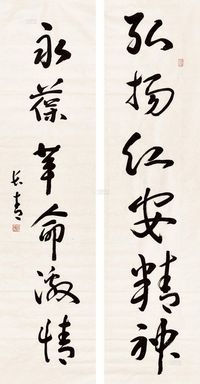 弘扬红安精神
永葆革命激情
长青